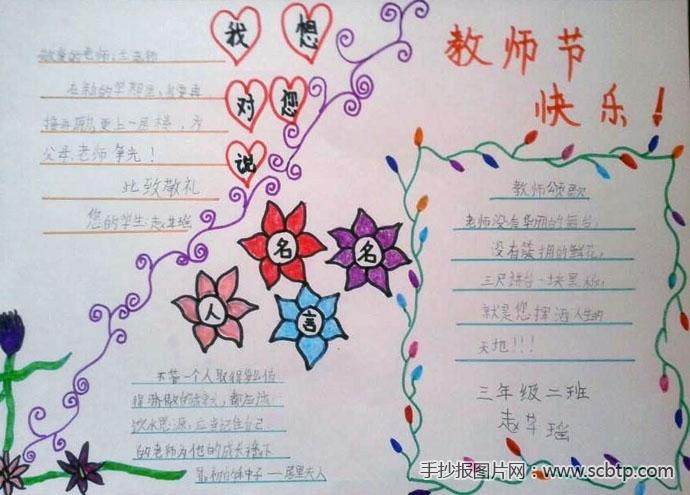 我想
对您
说
教师节
快乐!
敬爱的老师:
在新的学期里,我要再
接再励,更上一层楼,为
父母、老师争光!
此致敬礼
您的学生:
教师颂歌
老师没有华丽的舞台,
没有簇拥的鲜花,
三尺讲台一块黑板,
就是您挥洒人生的
天地!!!
三年级二班
名名
人言
不管一个人取得多么值
得骄傲的成就,都应该
饮水思源,应当记住自己
的老师为他的成长播下
最初的种子——居里夫人
手抄报图片网:www.scbtp.com